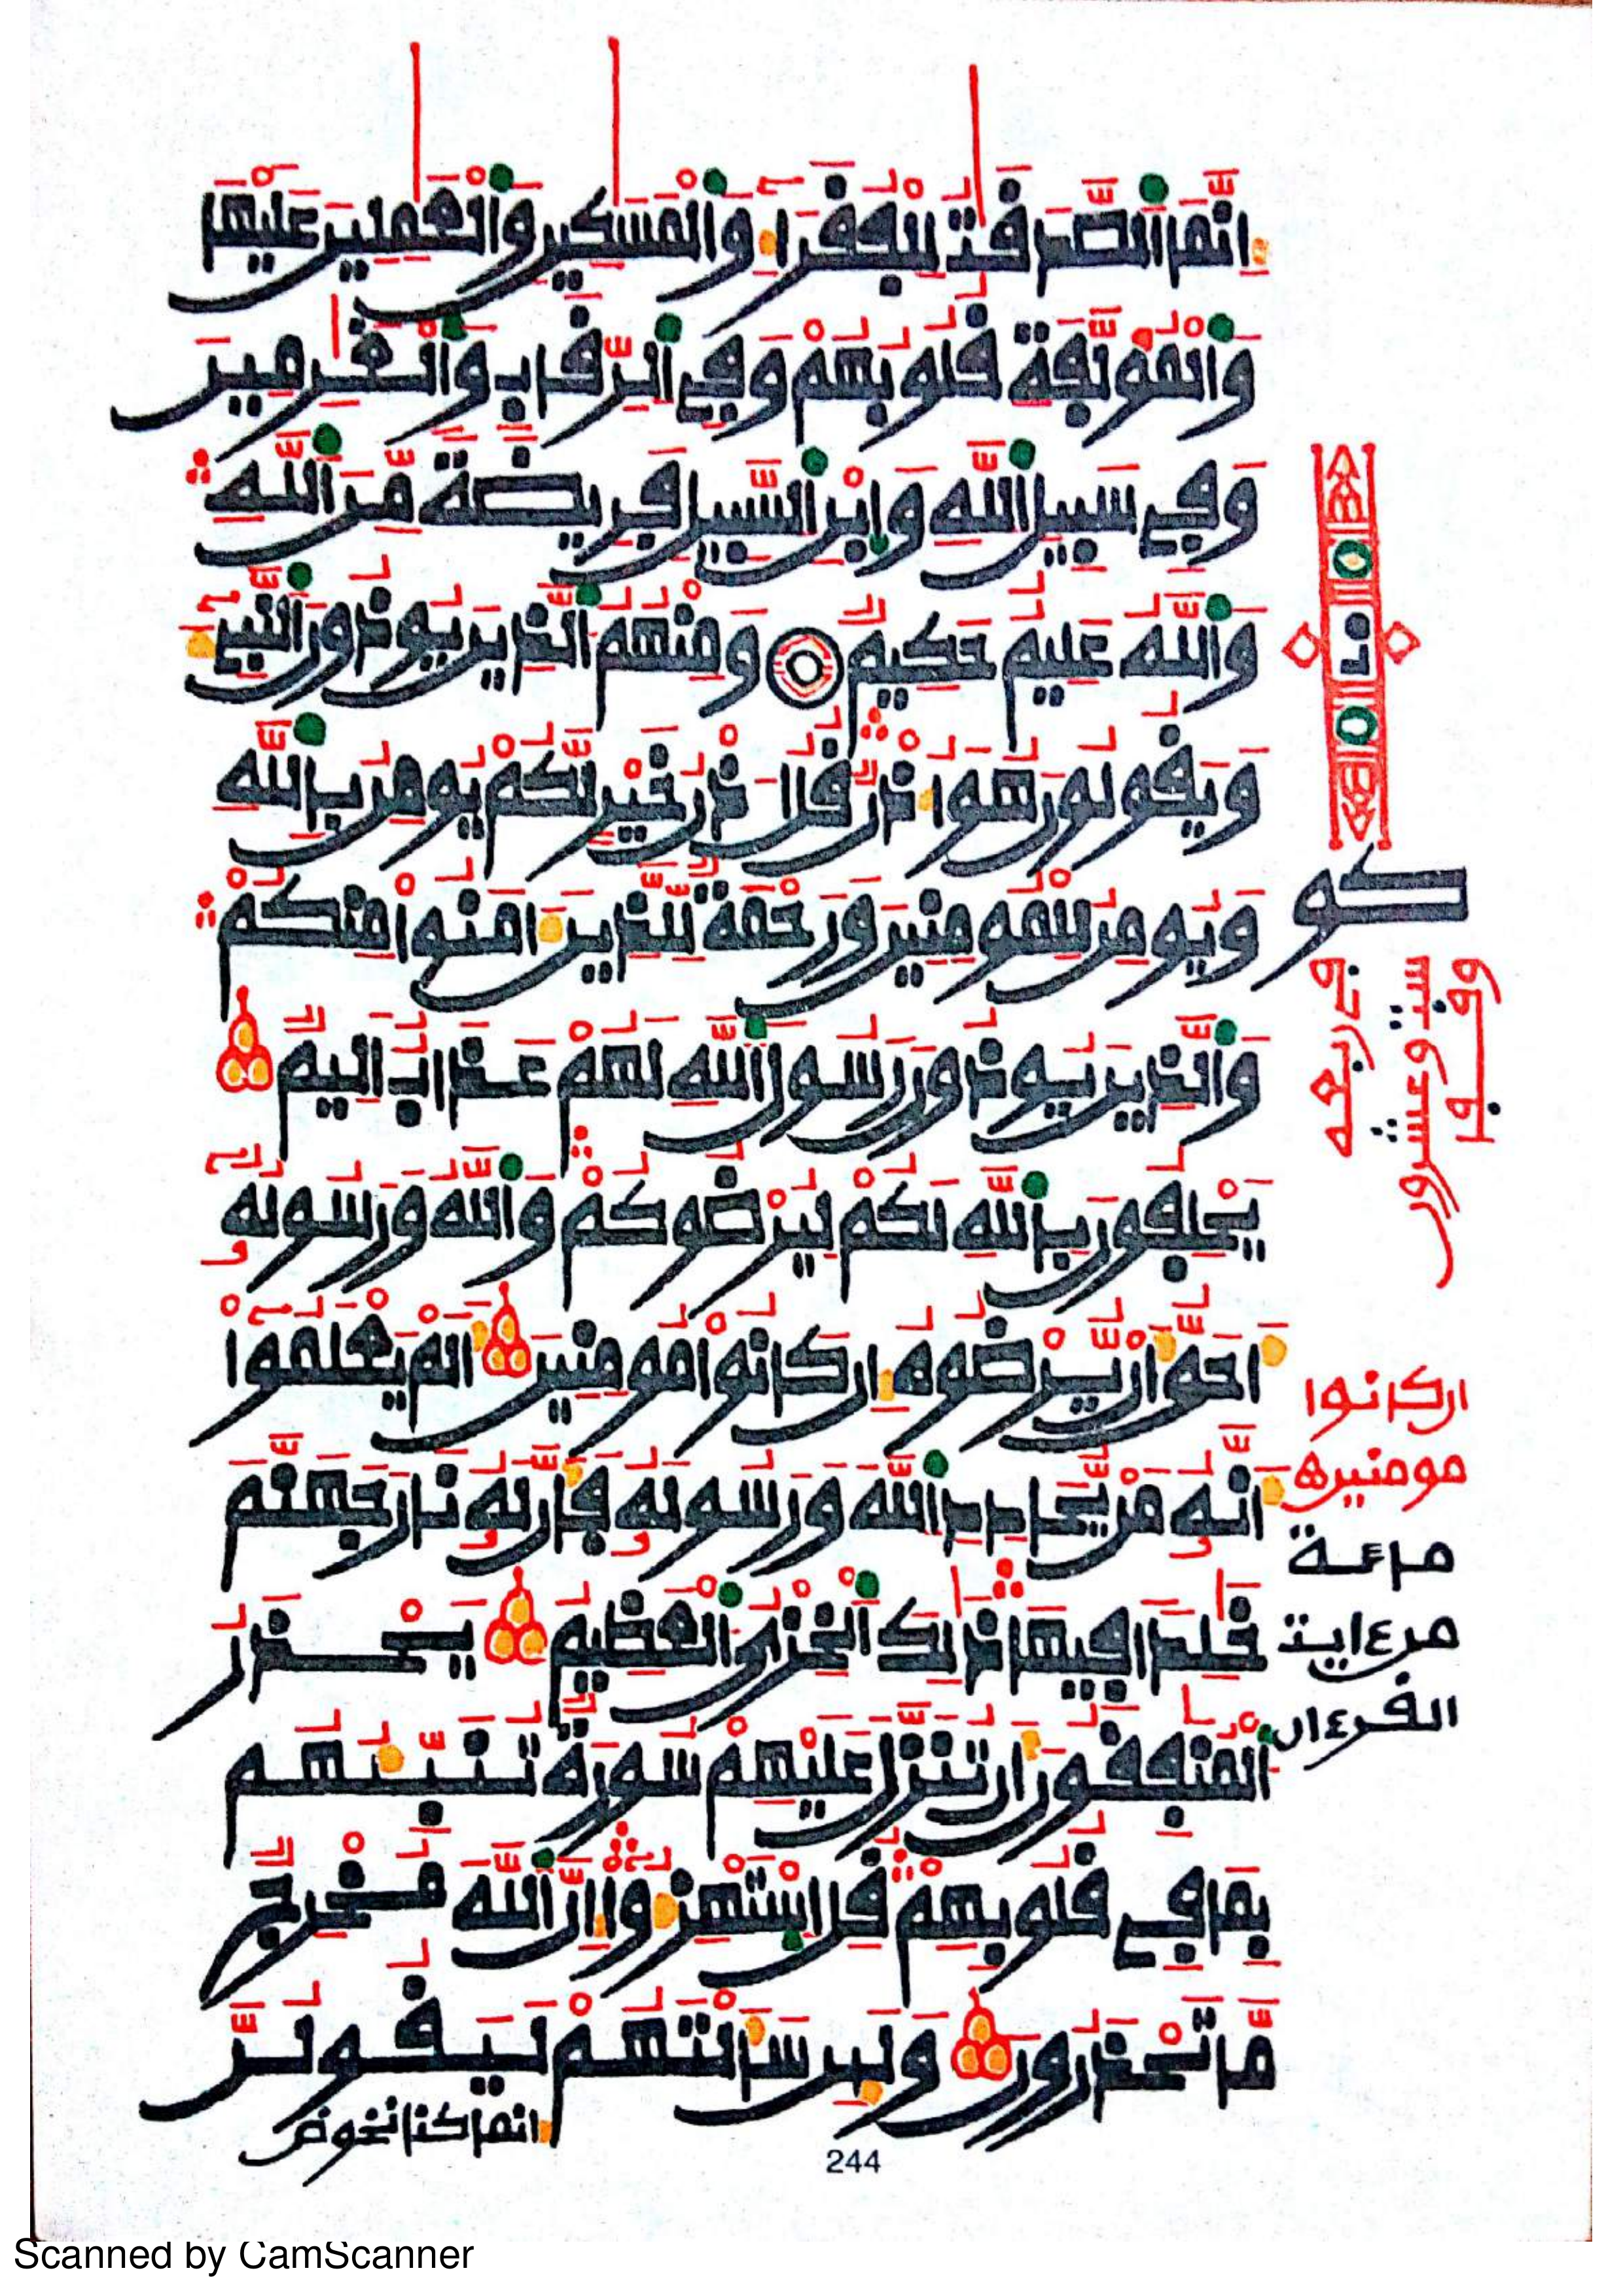 إِنَّمَا اَ۬لصَّدَقَٰتُ لِلْفُقَرَآءِ وَالْمَسَٰكِينِ وَالْعَٰمِلِينَ عَلَيْهَا
وَالْمُوَلَّفَةِ قُلُوبُهُمْ وَفِي اِ۬لرِّقَابِ وَالْغَٰرِمِينَ
وَفِي سَبِيلِ اِ۬للَّهِ وَابْنِ اِ۬لسَّبِيلِ فَرِيضَةً مِّنَ اَ۬للَّهِ
وَاللَّهُ عَلِيمٌ حَكِيمٌ وَمِنْهُمُ اُ۬لذِينَ يُوذُونَ اَ۬لنَّبِيٓءَ
وَيَقُولُونَ هُوَ أُذْنٌ قُلُ اذْنُ خَيْرٍ لَّكُمْ يُومِنُ بِاللَّهِ
وَيُومِنُ لِلْمُومِنِينَ وَرَحْمَةٌ لِّلذِينَ ءَامَنُوا مِنكُمْ
وَالذِينَ يُوذُونَ رَسُولَ اَ۬للَّهِ لَهُمْ عَذَابٌ اَلِيمٌ
يَحْلِفُونَ بِاللَّهِ لَكُمْ لِيُرْضُوكُمْ وَاللَّهُ وَرَسُولُهُۥٓ
أَحَقُّ أَنْ يُّرْضُوهُ إِن كَانُوا مُومِنِينَ أَلَمْ يَعْلَمُوٓا
أَنَّهُۥ مَنْ يُّحَادِدِ اِ۬للَّهَ وَرَسُولَهُۥ فَأَنَّ لَهُۥ نَارَ جَهَنَّمَ
خَٰلِداً فِيهَا ذَٰلِكَ اَ۬لْخِزْيُ اُ۬لْعَظِيمُ يَحْذَرُ
اُ۬لْمُنَٰفِقُونَ أَن تُنَزَّلَ عَلَيْهِمْ سُورَةٌ تُنَبِّئُهُم
بِمَا فِي قُلُوبِهِمْ قُلِ اِ۪سْتَهْزِءُوٓا إِنَّ اَ۬للَّهَ مُخْرِجٌ
مَّا تَحْذَرُونَ وَلَئِن سَأَلْتَهُمْ لَيَقُولُنَّ
إنما كنا نخوض
كو
في ربعه
ست وعشرون
وقف
ان كانوا
مومنين ه
مائة
من ءايت
القرءان
244
Scanned by CamScanner